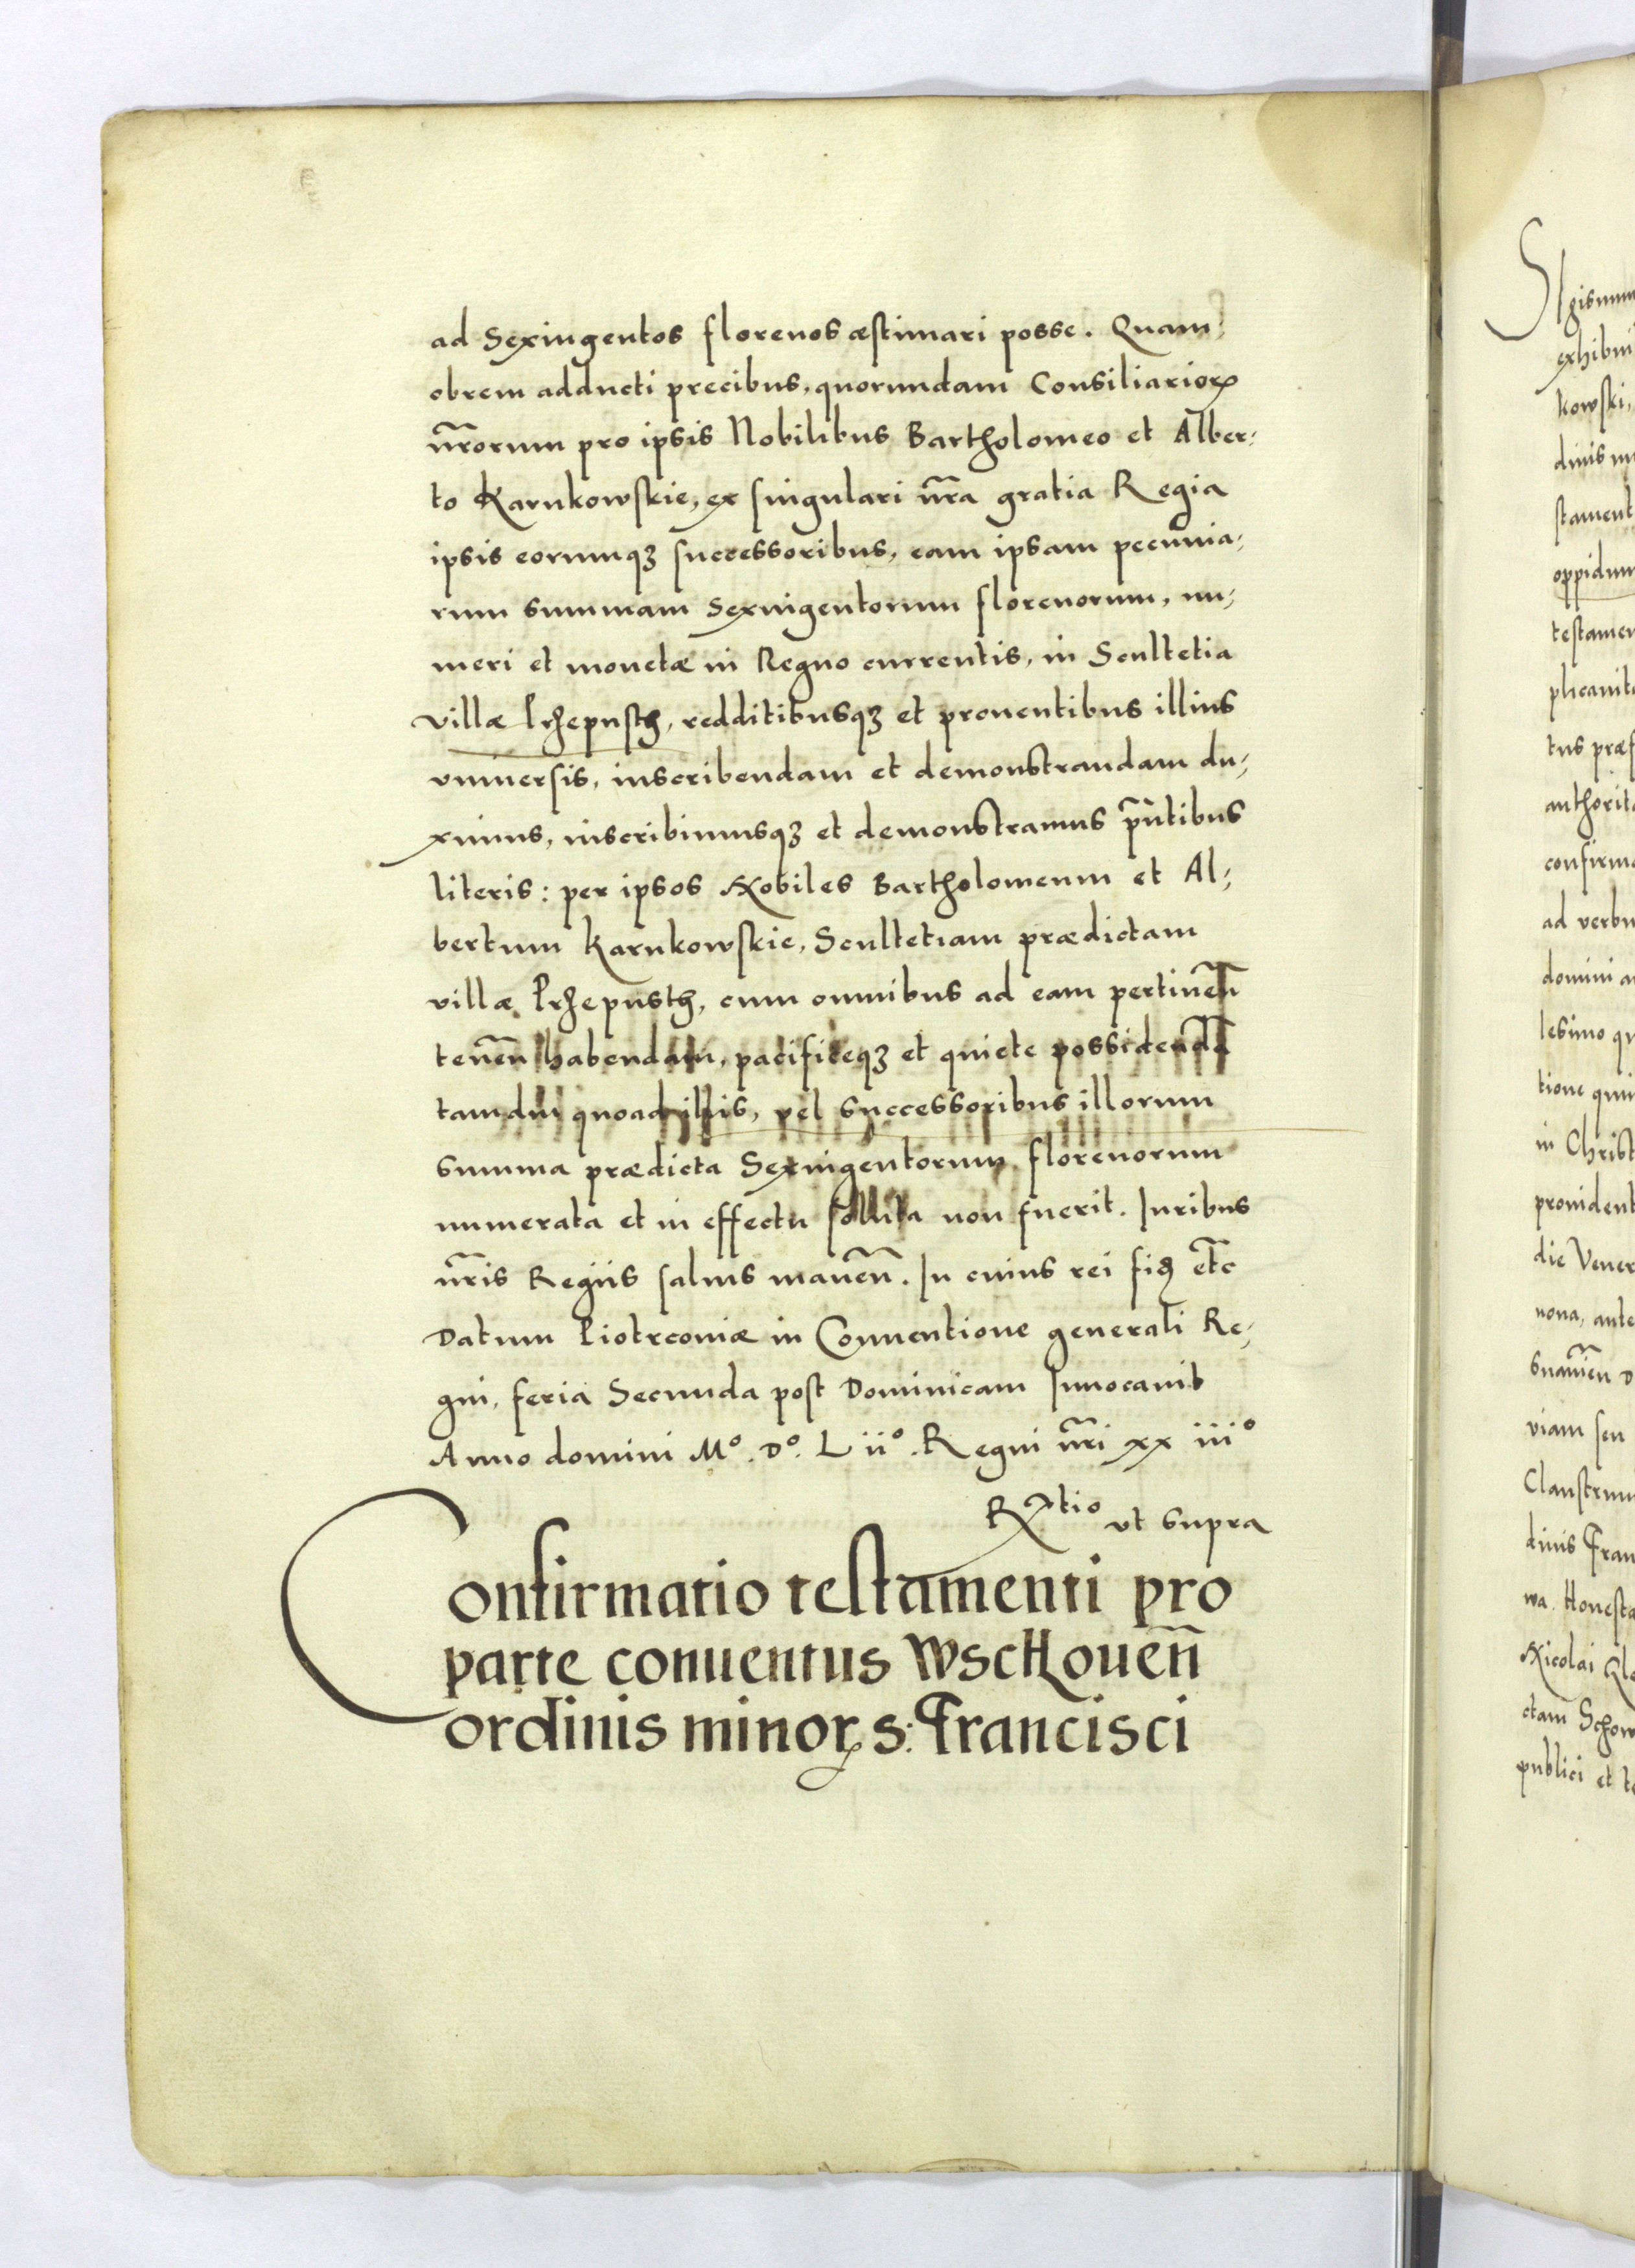 ad Sexingentos florenos æstimari posse. Quam;
obrem adducti precibus, quorundam Consiliarioꝝ
nr̃orum pro ipsis Nobilibus Bartholomeo et Alber;
to Karnkowskie, ex singulari nr̃a gratia Regia
ipsis eorumqꝫ successoribus, eam ipsam pecunia;
rum summam Sexingentorum florenorum, nu;
meri et monetæ in Regno currentis, in Scultetia
villæ Przepusth, redditibusqꝫ et prouentibus illius
vniuersis, inscribendam et demonstrandam du;
ximus, inscribimusqꝫ et demonstramus pr̃ntibus
literis: per ipsos Nobiles Bartholomeum et Al;
bertum Karnkowskie, Scultetiam prædictam
villæ Przepusth, cum omnibus ad eam pertineñ
teneñ habendam, pacificeqꝫ et quiete possidendã
tamdiu quoad illis, vel successoribus illorum
summa prædicta Sexingentorum florenorum
numerata et in effectu soluta non fuerit. Iuribus
nr̃is Regiis saluis maneñ. In cuius rei fiꝫ etc̃
Datum Piotrconiæ in Conuentione generali Re;
gni, feria Secunda post Dominicam Inuocauit
Anno domini Mº. Dº. L iiº. Regni nr̃i xx iiiº
Rtio vt supra
Confirmatio testamenti pro
parte conuentus Wschoueñ
ordinis minoꝝ s: Francisci
Sigismun
exhibui
kowski,
dinis m
stament
oppidum
testamen
plicauit
tus præf
authorit
confirma
ad verbu
domini a
lesimo qu
tione qui
in Christ
prouident
die Vener
nona, ante
viam seu
Claustrum
dinis Fran
wa. Honesta
Nicolai
ctam Schow
publici et te